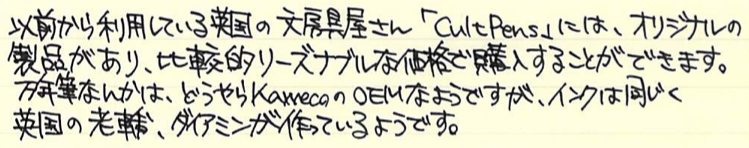 以前から利用している英国の文房具屋さん「CultPens」には、オリジナルの
製品があり、比較的リーズナブルな価格で購入することができます。
万年筆なんかは、どうやらKawecoのOEMなようですが、インクは同じく
英国の老舗、ダイアミンが作っているようです。